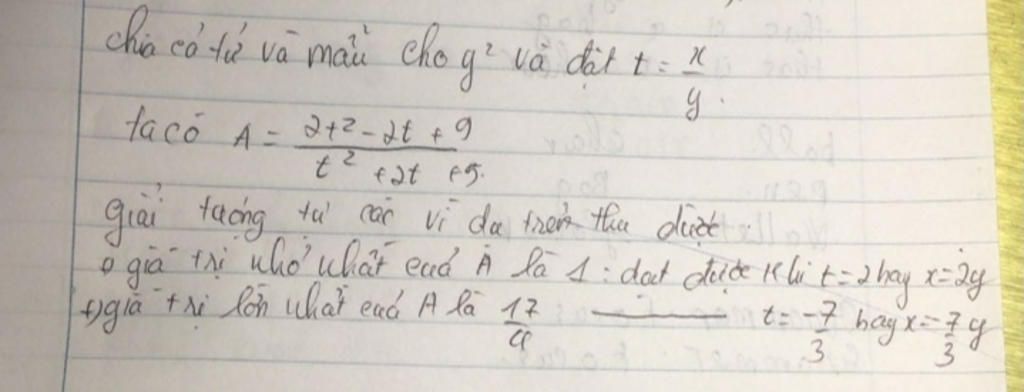 chia cả tử và mẫu cho y² và đặt t = x/y.
ta có A = (2t² - 2t + 9)/(t² + 2t + 5).
giải tương tự các ví dụ trên thu được:
+) giá trị nhỏ nhất của A là 1: đạt được khi t = 2 hay x = 2y
+) giá trị lớn nhất của A là 17/4 ——— t = -7/3 hay x = -7/3 y